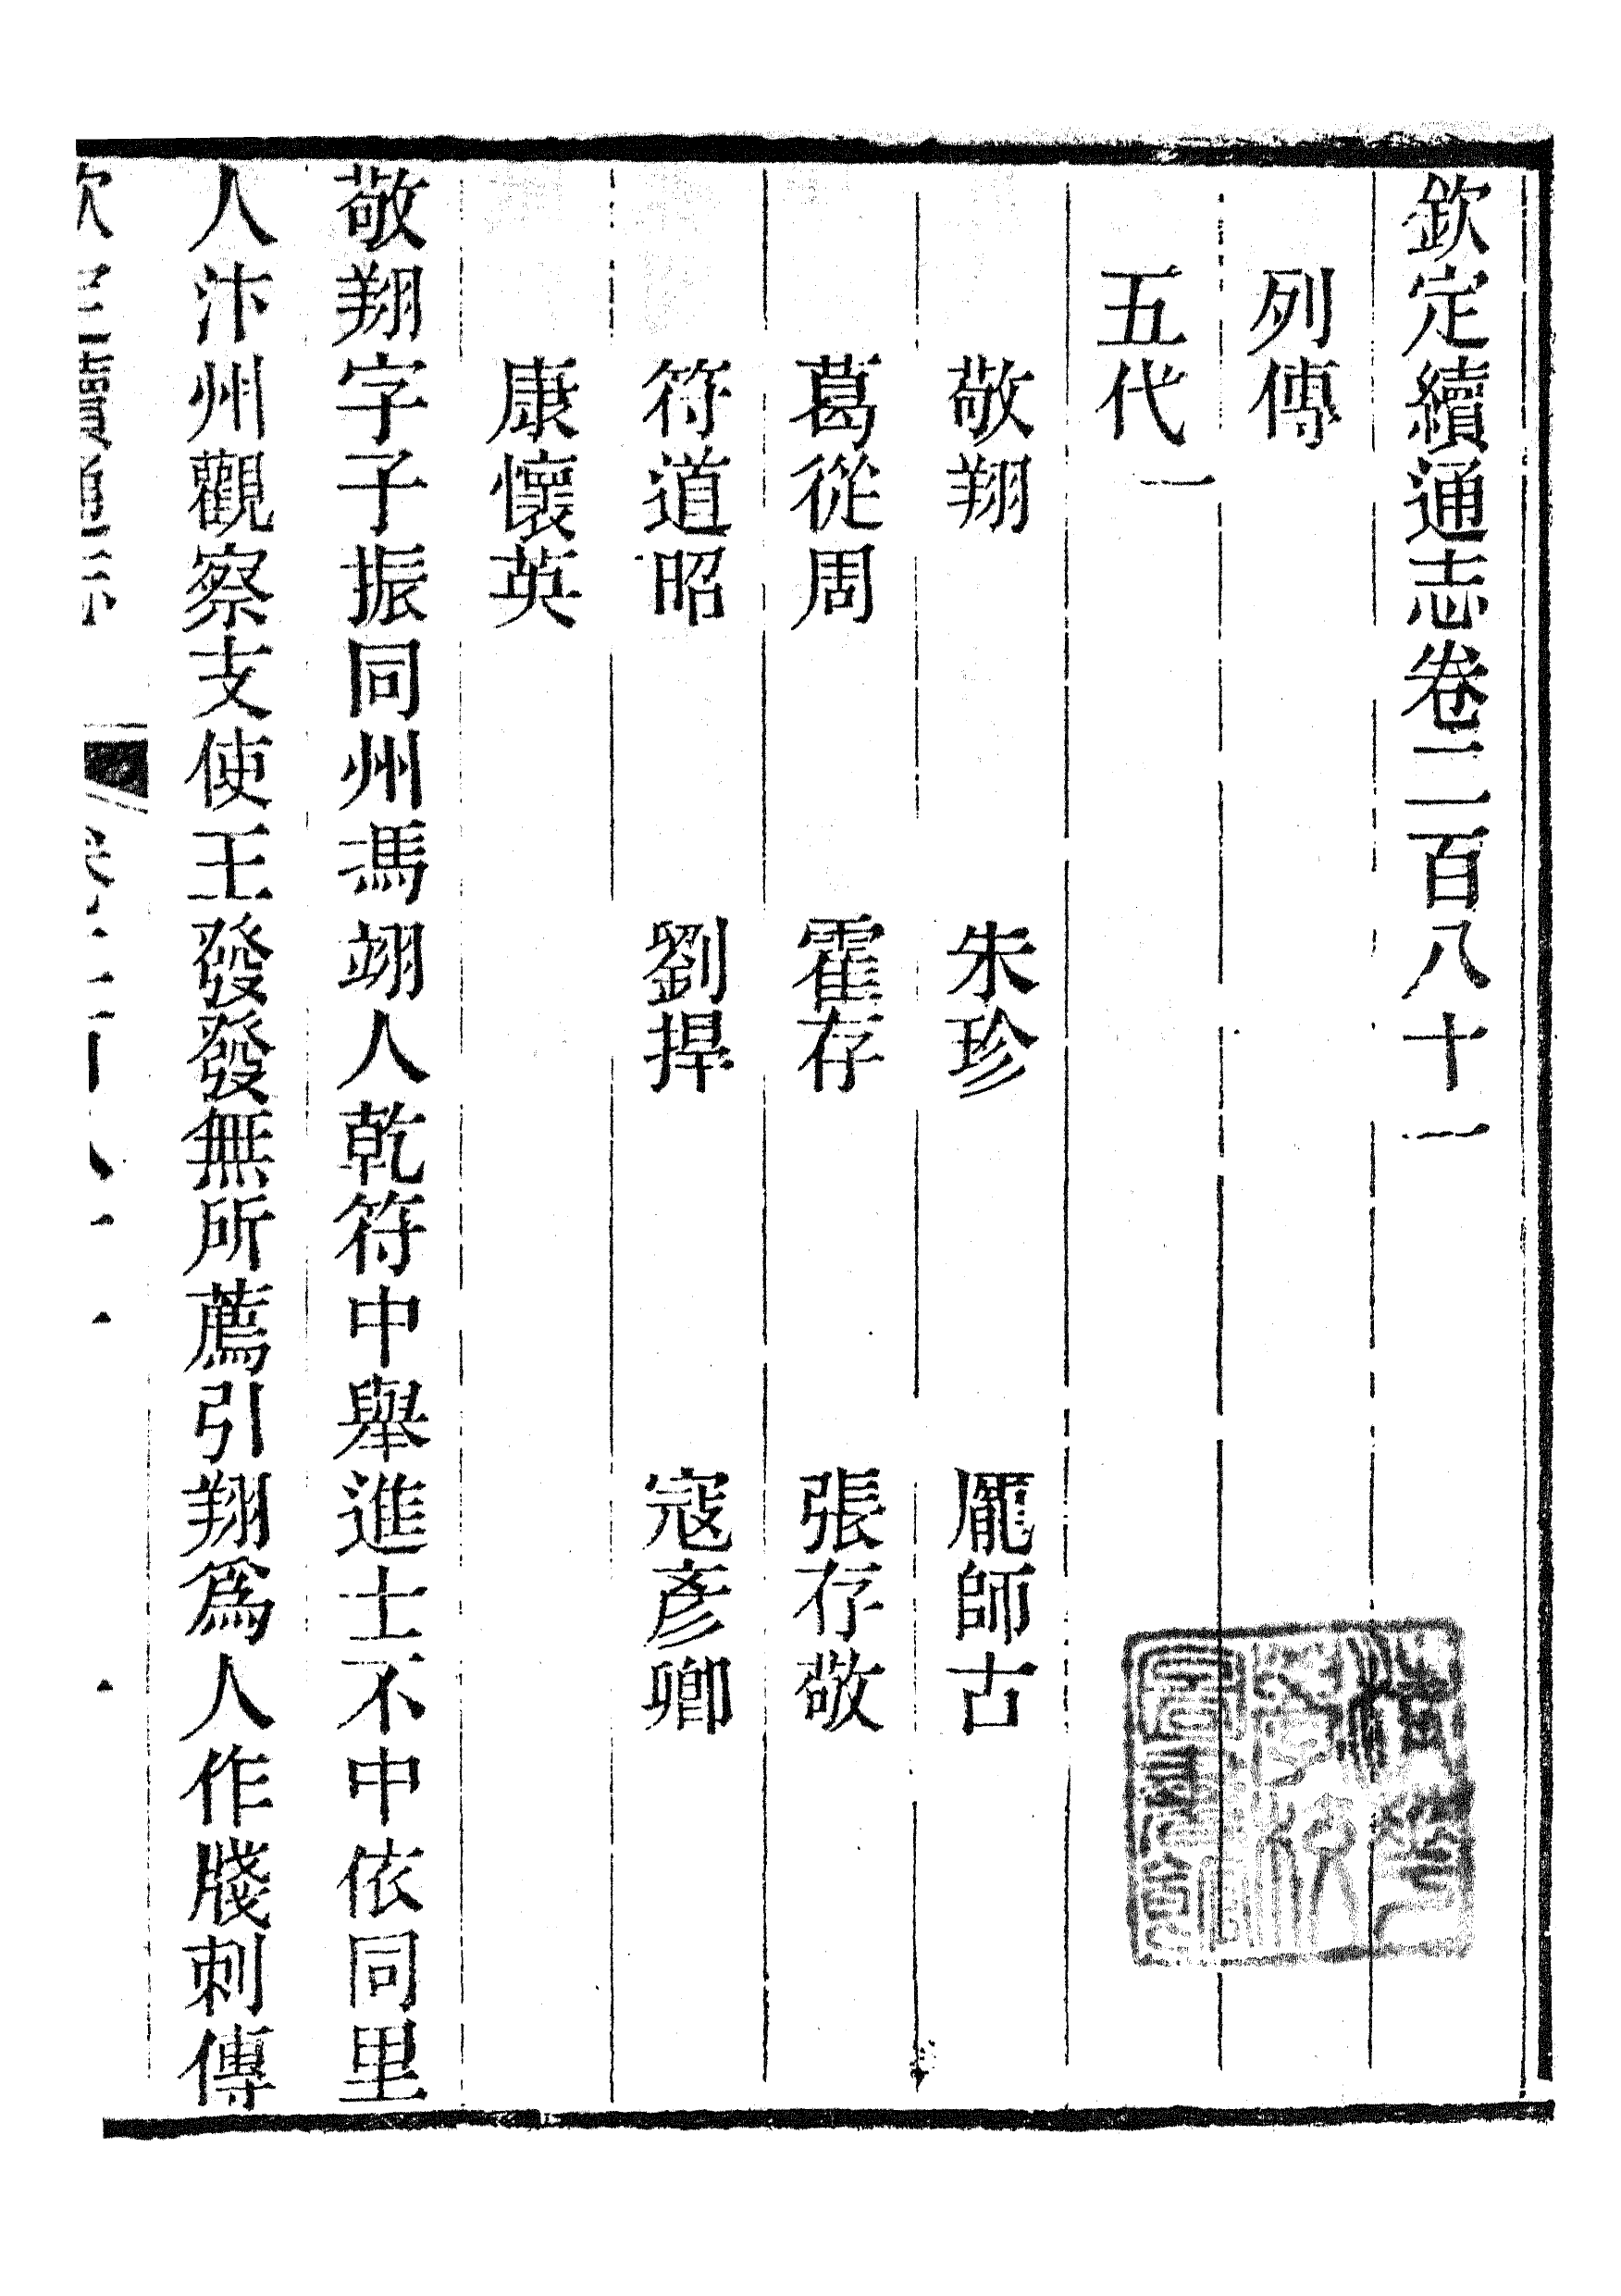 欽定續通志卷二百八十一
列傳
五代一
敬翔 朱珍 龎師古
葛從周 霍存 張存敬
符道昭 劉捍 寇彥卿
康懷英
敬翔字子振同州馮翊人乾符中舉進士不中依同里
人汴州觀察支使王發發無所薦引翔爲人作牋刺傳